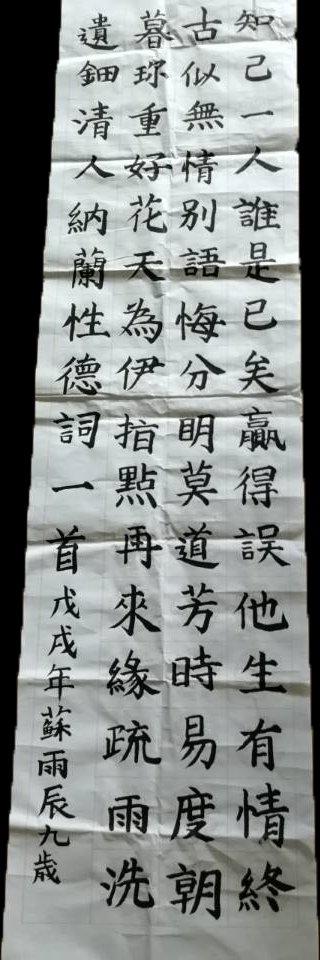 知己一人誰是已矣贏得誤他生有情終
古似無情别語悔分明莫道芳時易度朝
暮珎重好花天為伊指點再來緣疏雨洗
遺鈿清人納蘭性德詞一首戊戌年蘇雨辰九歲